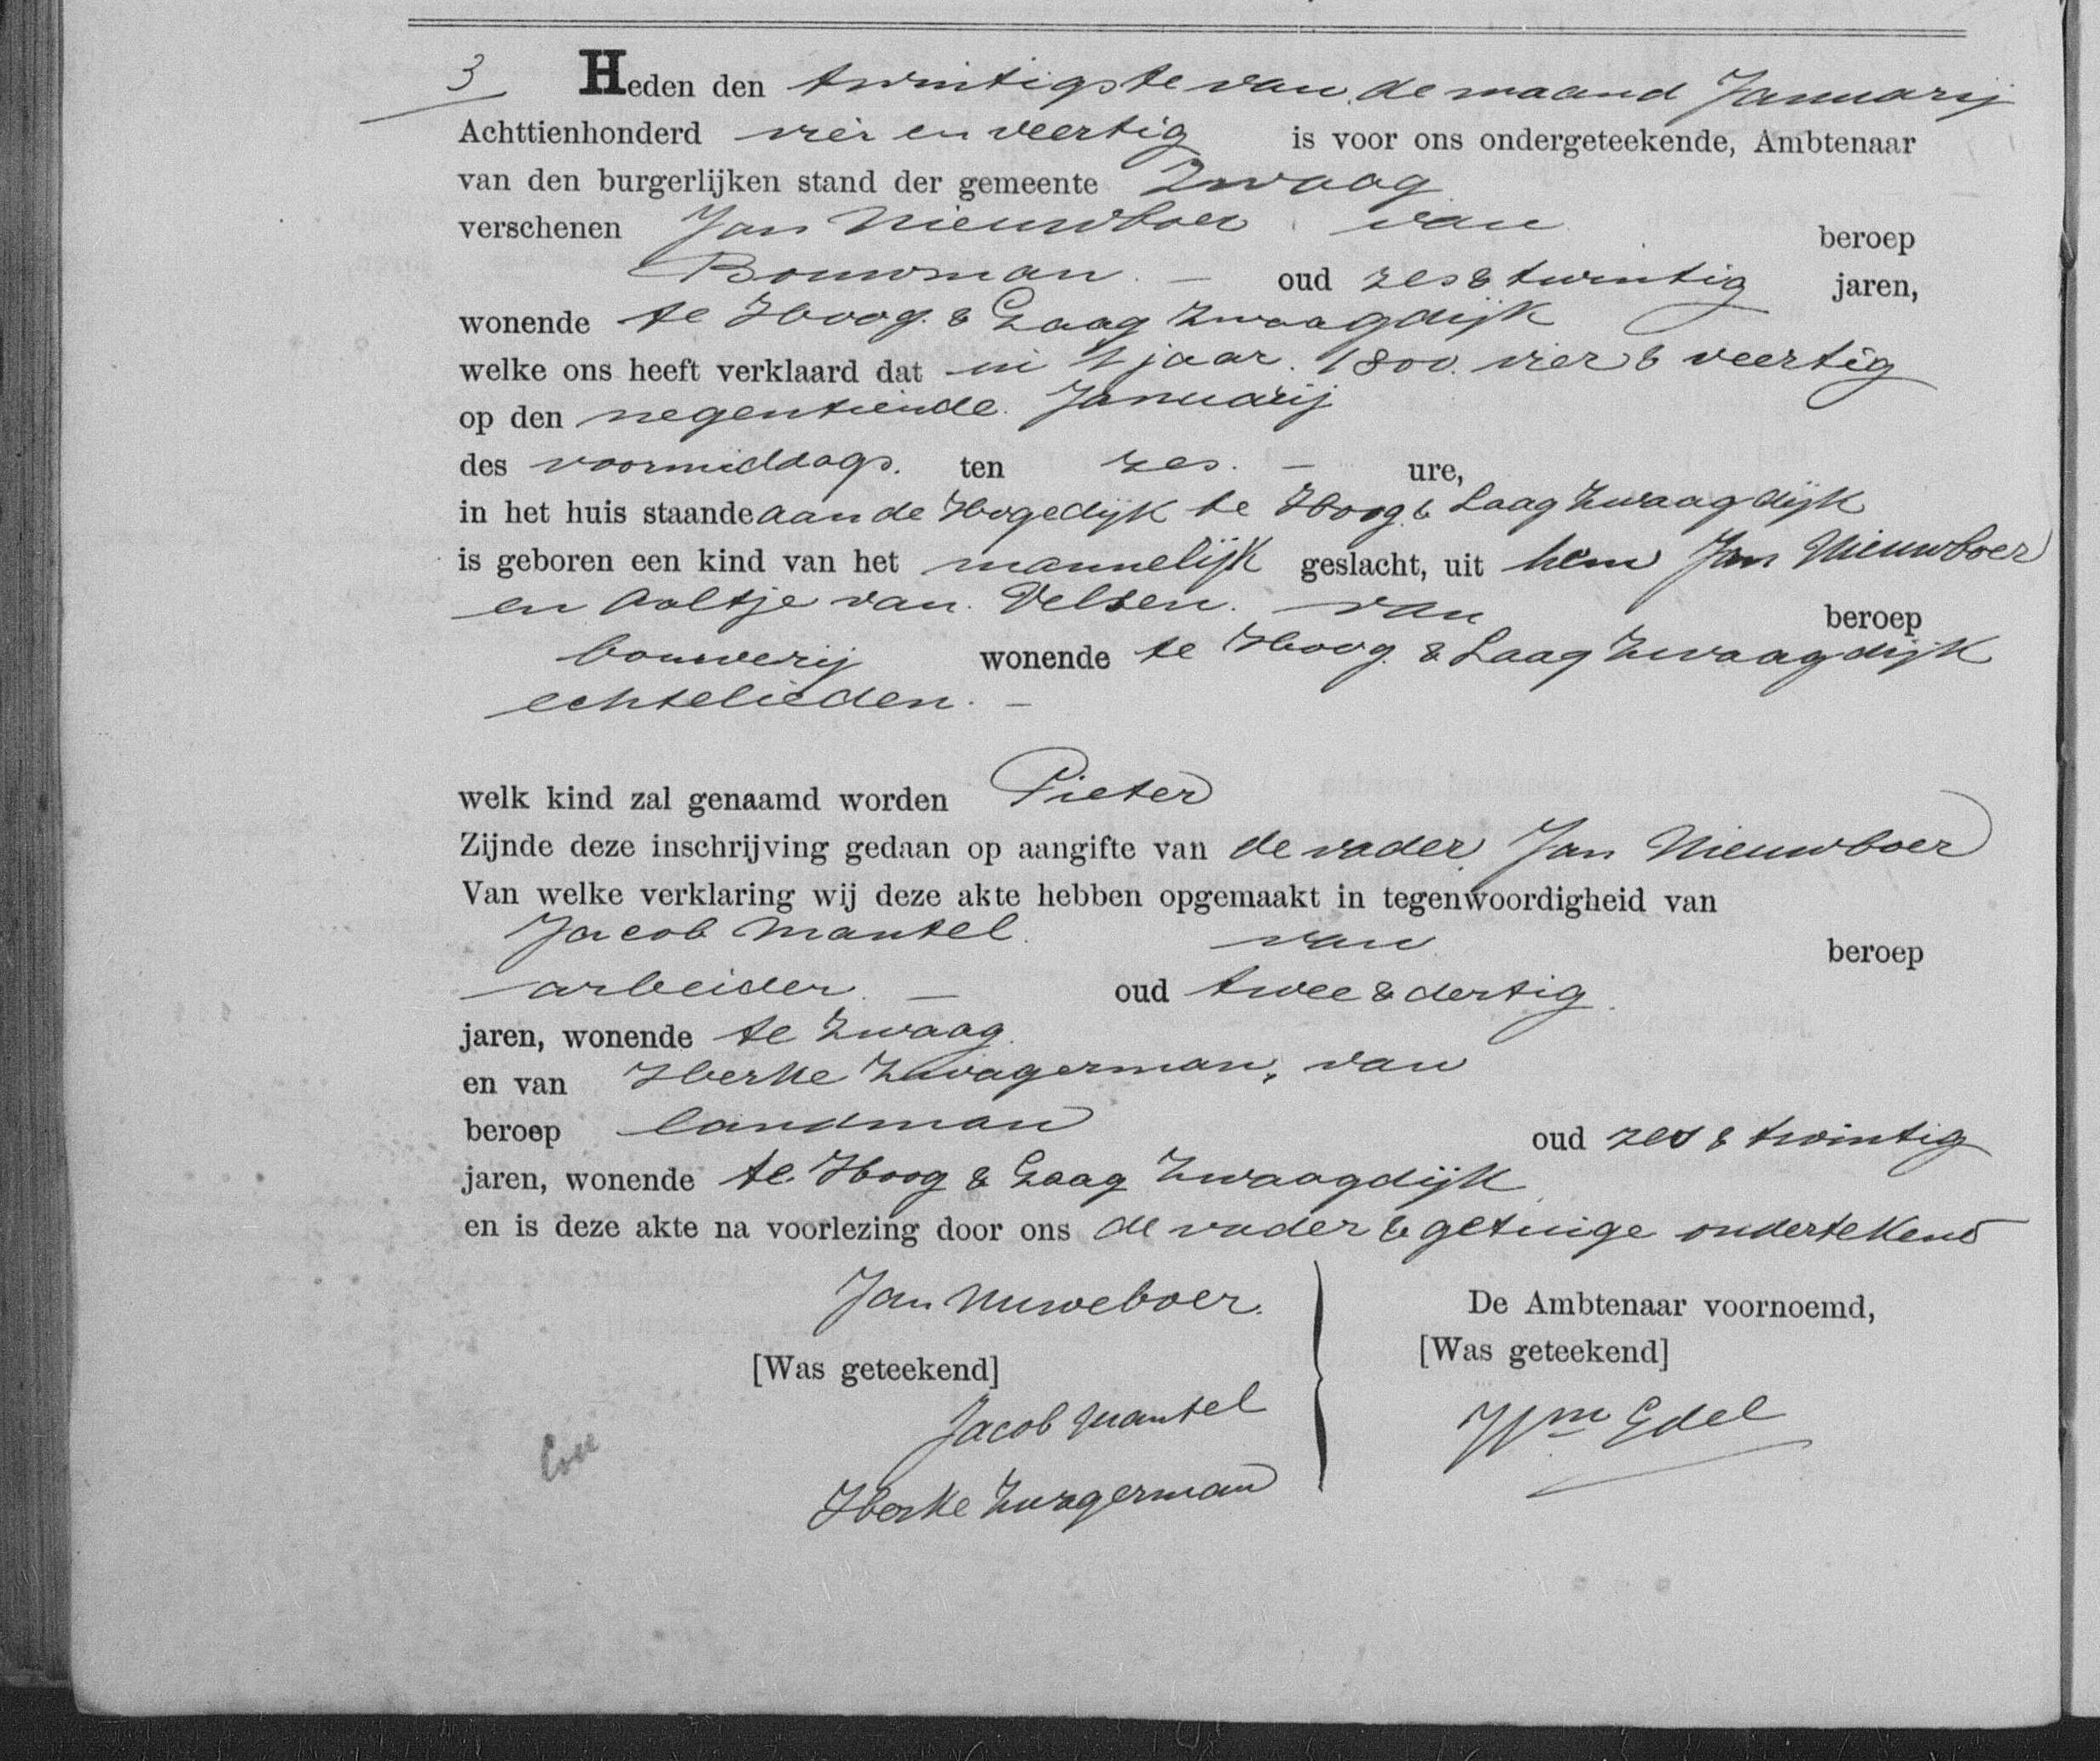 3 Heden den twintigste van de maand Januarij
Achttienhonderd vier en veertig is voor ons ondergeteekende, Ambtenaar
van den burgerlijken stand der gemeente Zwaag
verschenen Jan Nieuwboer van beroep
Bouwman. — oud zes & twintig jaren,
wonende te Hoog. & Laag Zwaagdijk
welke ons heeft verklaard dat in 't jaar. 1800. vier & veertig
op den negentiende. Januarij
des voormiddags. ten zes. — ure,
in het huis staande aan de Hogedijk te Hoog. & Laag Zwaagdijk
is geboren een kind van het mannelijk geslacht, uit hem Jan Nieuwboer
en Aaltje van Velsen. van beroep
bouwerij wonende te Hoog. & Laag Zwaagdijk
echtelieden. —
welk kind zal genaamd worden Pieter
Zijnde deze inschrijving gedaan op aangifte van de vader Jan Nieuwboer
Van welke verklaring wij deze akte hebben opgemaakt in tegenwoordigheid van
Jacob Mantel. van beroep
arbeider. — oud twee & dertig.
jaren, wonende te Zwaag.
en van Herke Zwagerman, van
beroep landman oud zes & twintig
jaren, wonende te Hoog & Laag Zwaagdijk
en is deze akte na voorlezing door ons de vader & getuige ondertekend
Jan Nuweboer. De Ambtenaar voornoemd,
[Was geteekend] [Was geteekend]
Jacob Mantel Wm Edel
Herke Zwagerman